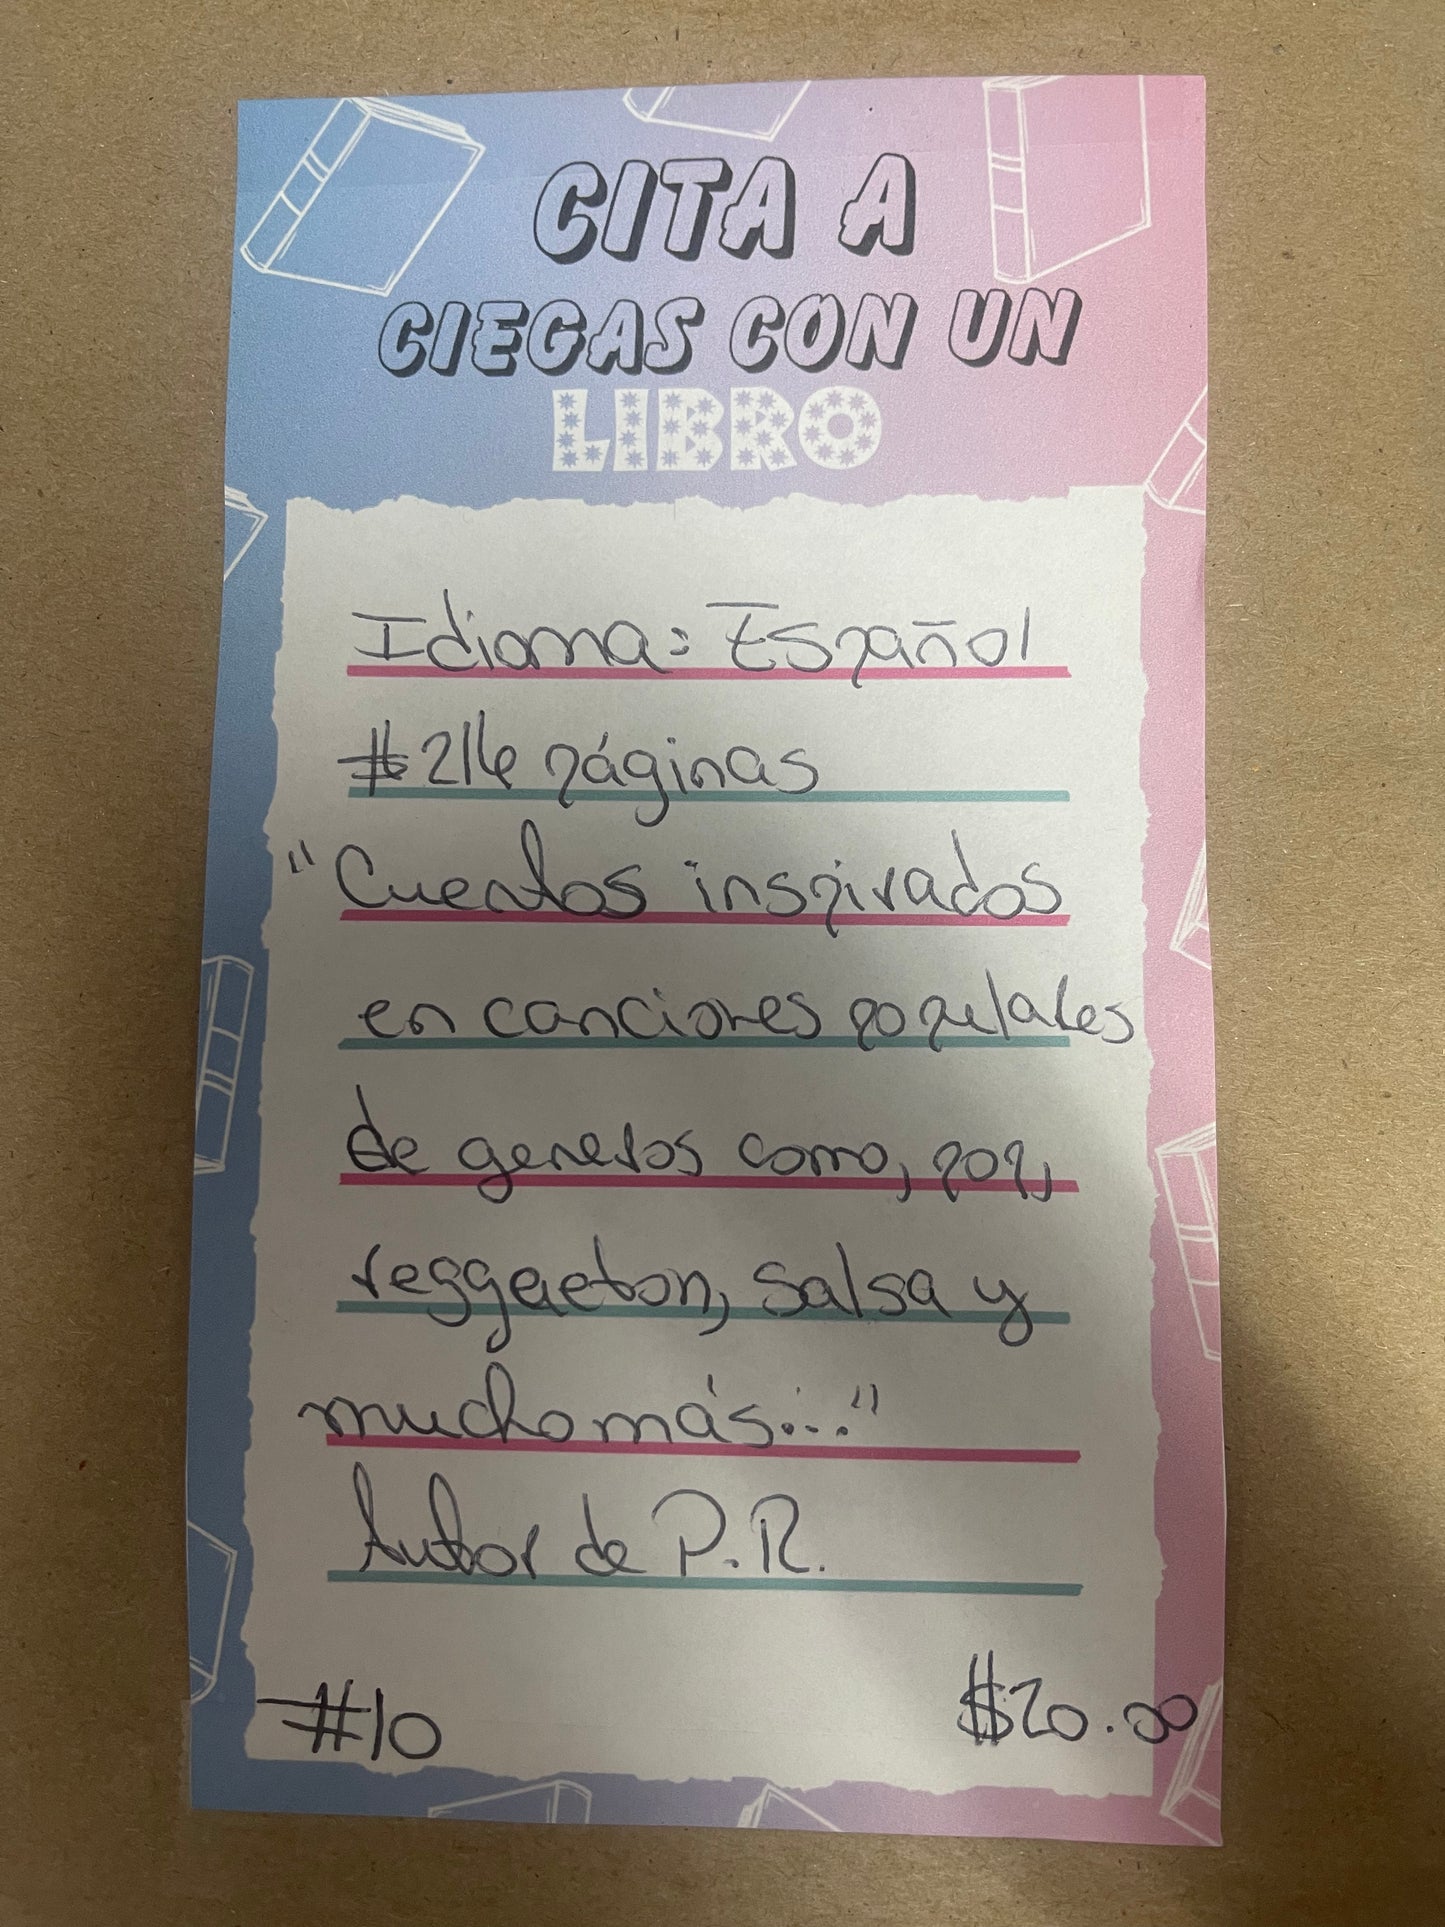 CITA A
CIEGAS CON UN
LIBRO
Idioma: Español
#216 páginas
"Cuentos inspirados
en canciones populares
de generos como, pop,
reggaeton, salsa y
mucho más..."
Autor de P.R.
#10
$20.00